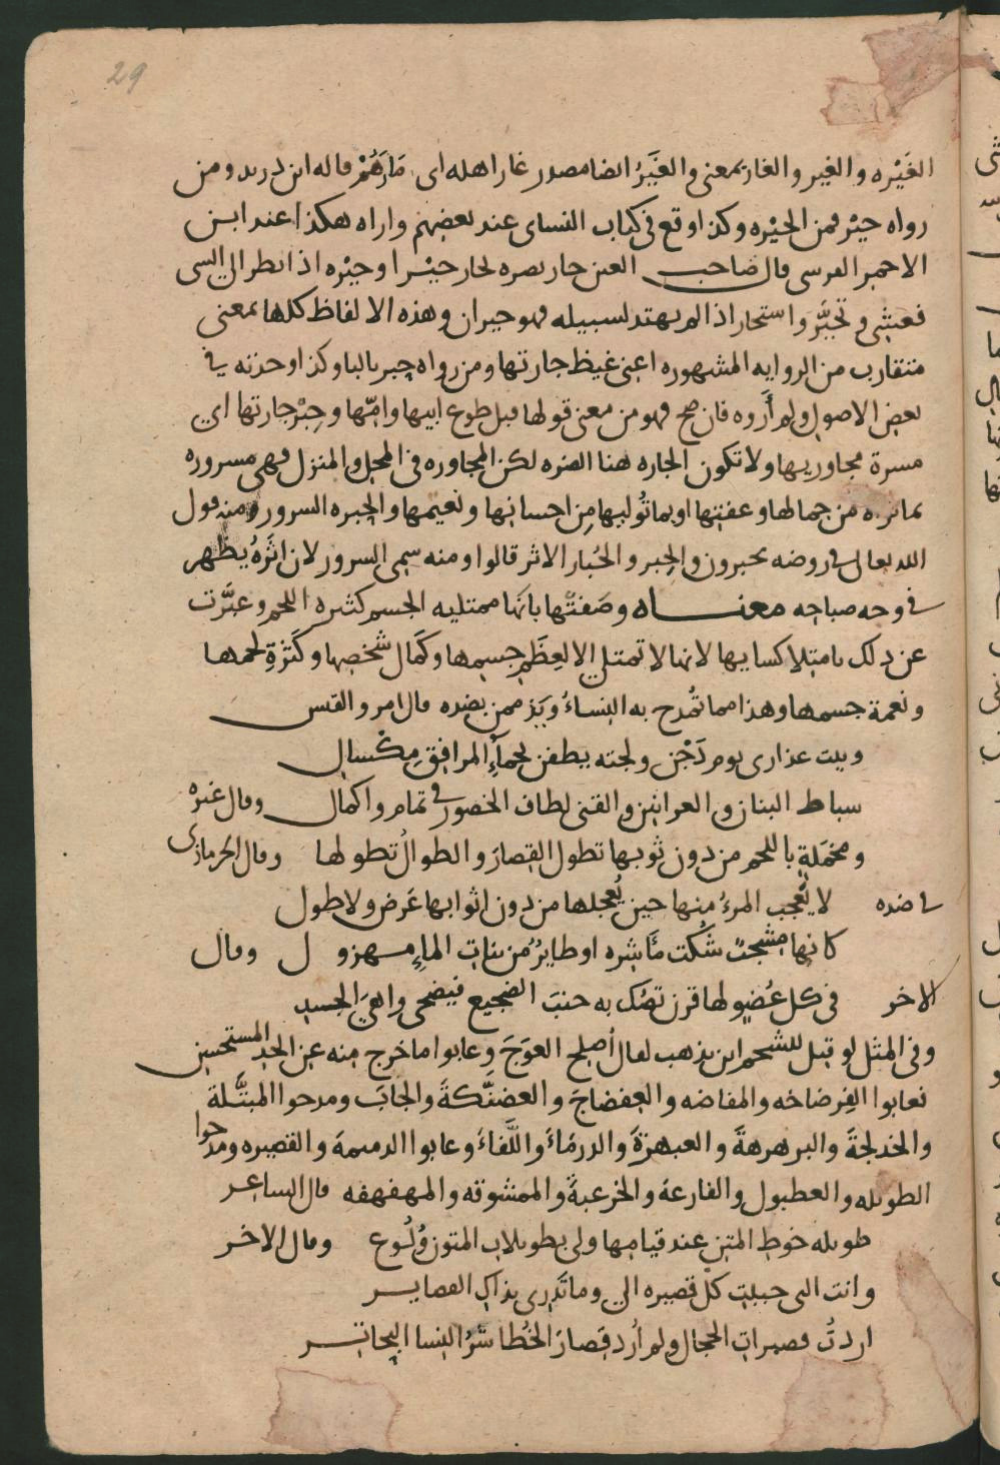 29
الغَيْره والغير والغار بمعنى والغَيَرُ ايضا مصدر غار اهله اى مَارَهُمْ قاله ابن دريد ومن
رواه حيْر فمن الحيْره وكذا وقع فى كتاب النساى عند بعضهم واراه هكذا عند ابن
الاحمر القرسى قال صاحب العين حار بصره يحار حيْرا وحيْره اذا نظر الى الشى
فعشى وتحيَّر واستحار اذا لم يهتد لسبيله فهو حيران وهذه الالفاظ كلها بمعنى
متقارب من الروايه المشهوره اعنى غيظ جارتها ومن رواه حبر بالبا وكذا وجدته فى
بعض الاصول ولم أَروه فان صح فهو من معنى قولها قبل طوع ابيها وامّها وحِبْر جارتها اى
مسرة مجاوريها ولا تكون الجاره هنا الضره لكن المجاوره فى المحل والمنزل فهى مسروره
بما تراه من جمالها وعفتها او بما تُوليها من احسانها ونعيمها والحبره السرور ومنه قول
الله تعالى فى روضه يحبرون والحِبر والحُبار الاثر قالوا ومنه سمى السرور لان اثَرهُ يظهر
فى وجه صاحبه معنــاه وصَفتْها بانها ممتليه الجسم كثيره اللحم وعبَّرت
عن ذلك بامتلا كسايها لانها لا تمتلى الا لعِظَم جسمها وكَمال شخصها وكَثرةِ لحمها
ونعمة جسمها وهذا مما تُمدح به النساءُ ويَذممن بضده قال امرو القيس
وبيت عذارى يوم دَجْن ولجته يطفن بجمآءِ المرافق مِكْسال
سباط البنان والعرانين والقنى لطاف الخصور فى تمام واكمال وقال غيره
ومخمَلةٍ باللحم من دون ثوبها تطول القصارَ والطوالُ تطولها وقال الحرمازى
فى ضده لا يُعجب المرءُ منها حين يُعجلها من دون اثوابها عَرض ولا طول
كانها مشجبٌ شُكت مآشره او طايرٌ من بنات المإِ مهزول وقال
الاخر فى كل عُضو لها قرن تصُك به جنبَ الضجيع فيضحى واهىَ الجسد
وفى المثل لو قيل للشحم اين تذهب لقال أُصلح العوَجَ وعابوا ما خرج منه عن الحد المستحسن
فعابوا الفِرضاخه والمفاضه والعِفضاجَ والعضنَّكةَ والجَابَ ومدحوا المبتَّلة
والخدلجةَ والبرهرهةَ والعبهرةَ والدرمَاءَ واللَّفاءَ وعابوا الدميمهَ والقصيره ومدحوا
الطويله والعطبول والفارعة والخرعبةَ والممشوقه والمهفهفه قال الشاعر
طويله خوط المتن عند قيامها ولى بطويلات المتون وُلُوع وقال الاخر
وانت التى حببت كل قصيره الى وما تَدرى بذاك القصايـر
اردتُ قصيرات الحجال ولم اُرد قِصارَ الخُطا شرُّ النسا البحاتر